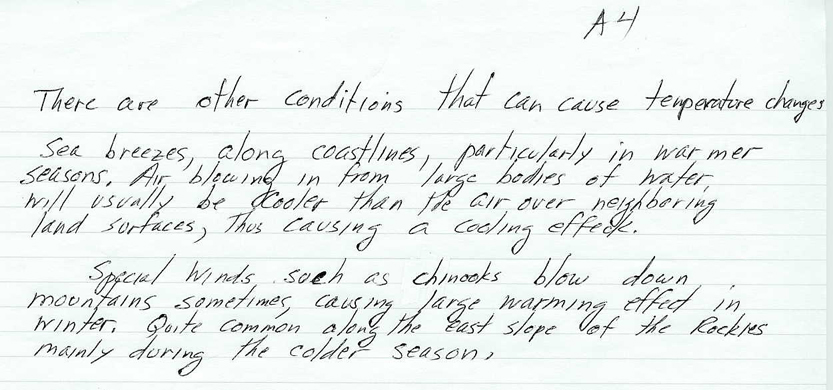 A4
There are other conditions that can cause temperature changes
Sea breezes, along coastlines, particularly in warmer
seasons. Air blowing in from large bodies of water,
will usually be cooler than the air over neighboring
land surfaces, Thus causing a cooling effect.
Special winds such as chinooks blow down
mountains sometimes, causing large warming effect in
winter. Quite common along the east slope of the Rockies
mainly during the colder season.